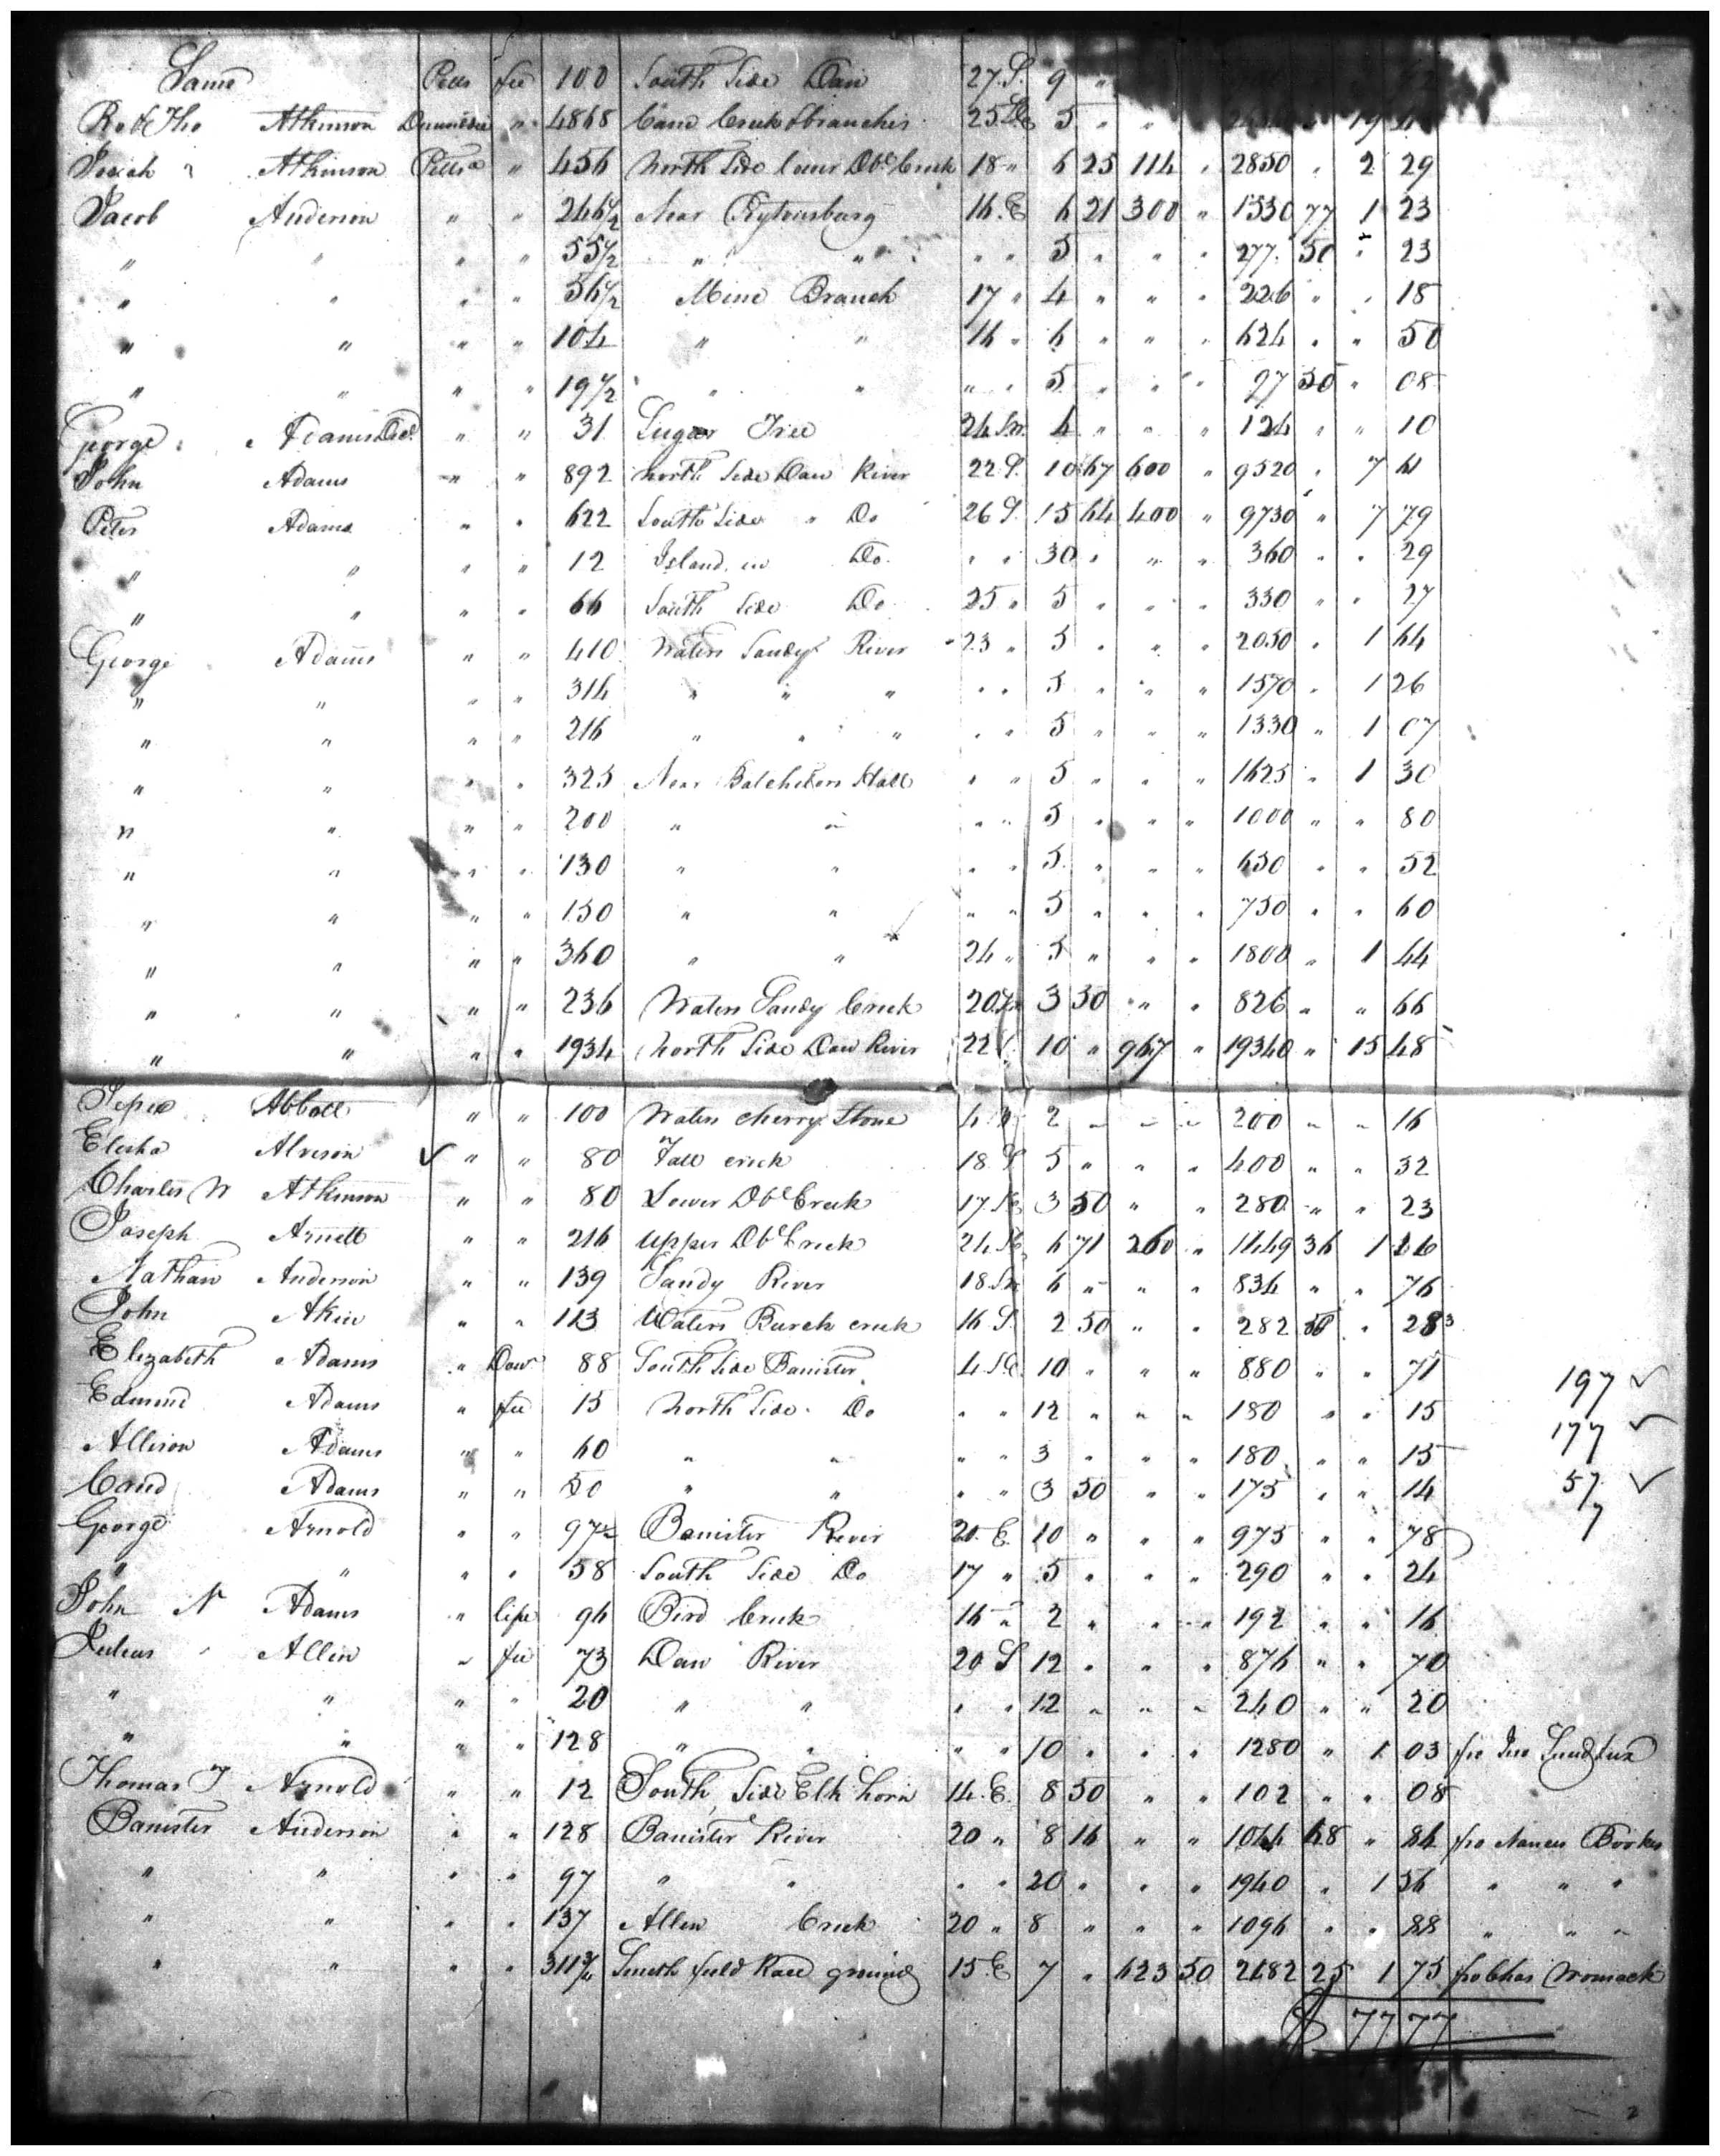 Same Pitts fee 100 South Side Dan 27 S. 9 "
Ro & Tho Atkinson Dinwiddie " 4868 Cane Creek & branches 25 SE 5 " " 19
Josiah Atkinson Pitts a " 456 North Side lower Dble Creek 18 " 6 25 114 " 2850 " 2 29
Jacob Anderson " " 246 1/2 Near 16. E 6 21 300 " 1530 77 1 23
" " " " 55 1/2 " " " " 5 " " " 277 50 " 23
" " " " 56 1/2 Mine Branch 17 " 4 " " " 226 " " 18
" " " " 104 " " 16 " 6 " " " 624 " " 50
" " " " 19 1/2 " " " " 5 " " " 97 50 " 08
George Adams Decd " " 31 Sugar Tree 24 SW. 4 " " " 124 " " 10
John Adams " " 892 North Side Dan River 22 S. 10 67 600 " 9520 " 7 61
Peter Adams " " 622 South Side " Do 26 S. 15 64 400 " 9730 " 7 79
" " " " 12 Island in Do " " 30 " " " 360 " " 29
" " " " 66 South Side Do 25 " 5 " " " 330 " " 27
George Adams " " 410 Waters Sandy River 23 " 5 " " " 2050 " 1 64
" " " " 314 " " " " " 5 " " " 1570 " 1 26
" " " " 216 " " " " " 5 " " " 1330 " 1 07
" " " " 325 Near Batchelors Hall " " 5 " " " 1625 " 1 30
" " " " 200 " " " " 5 " " " 1000 " " 80
" " " " 130 " " " " 5 " " " 650 " " 52
" " " " 150 " " " " 5 " " " 750 " " 60
" " " " 360 " " 24 " 5 " " " 1800 " 1 44
" " " " 236 Waters Sandy Creek 20 SW 3 50 " " 826 " " 66
" " " " 1934 North Side Dan River 22 S. 10 " 967 " 19340 " 15 48
Jesse Abbott " " 100 Waters Cherry Stone 4 2 " " " 200 " " 16
Elisha Alverson " " 80 Fall creek 18 S 5 " " " 400 " " 32
Charles W Atkinson " " 80 Lower Dble Creek 17 SE 3 50 " " 280 " " 23
Joseph Arnett " " 216 Upper Dble Creek 24 SE 6 71 260 " 1449 36 1 16
Nathan Anderson " " 139 Sandy River 18 SW 6 " " " 834 " " 76
John Akin " " 113 Waters Burch creek 16 S. 2 50 " " 282 50 " 23
Elizabeth Adams " Dow 88 South Side Banister 4 SE 10 " " " 880 " " 71 197
Edmund Adams " fee 15 North Side Do " " 12 " " " 180 " " 15 177
Allison Adams " " 60 " " " " 3 " " " 180 " " 15
Adams " " 50 " " " " 3 50 " " 175 " " 14 57
George Arnold " " 97 1/2 Banister River 20. E. 10 " " " 975 " " 78 7
" " " " 58 South Side Do 17 " 5 " " " 290 " " 24
John N Adams " life 96 Bird Creek 16 " 2 " " " 192 " " 16
Julius Allen " fee 73 Dan River 20 S 12 " " " 876 " " 70
" " " " 20 " " " " 12 " " " 240 " " 20
" " " " 128 " " " " 10 " " " 1280 " 1 03 fro Jno
Thomas T Arnold " " 12 South Side Elk horn 14. E. 8 50 " " 102 " " 08
Banister Anderson " " 128 Banister River 20 " 8 16 " " 1044 48 " 84 fro Nances
" " " " 97 " " " " 20 " " " 1940 " 1 56 " " "
" " " " 137 Allen Creek 20 " 8 " " " 1096 " " 88 " " "
" " " " 311 3/4 Smith field Race ground 15. E 7 " 623 50 2182 25 1 75 fro Chas Womack
$ 77 77